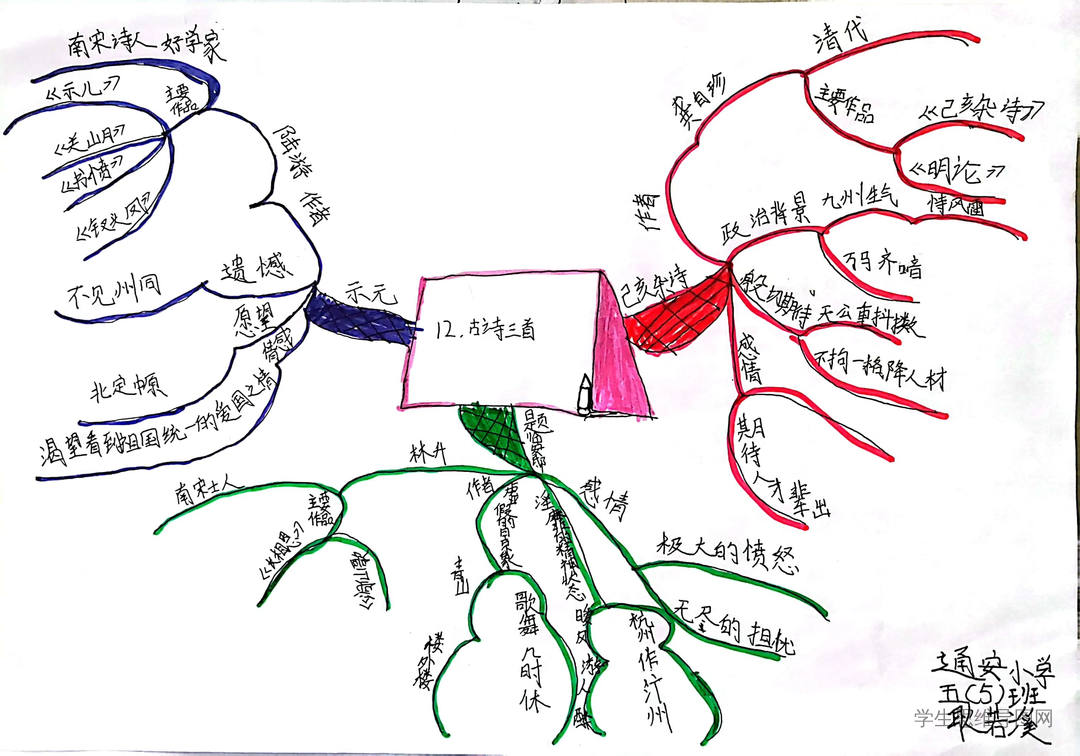 12. 古诗三首
示元
作者
陆游
南宋诗人 好学家
主要作品
《示儿》
《关山月》
《书愤》
遗憾
不见州同
愿望
北定中
情感
渴望看到祖国统一的爱国之情
己亥杂诗
作者
龚自珍
清代
主要作品
《己亥杂诗》
《明论》
政治背景
九州生气
恃风雷
万马齐喑
期待
天公重抖擞
不拘一格降人材
感情
期待人才辈出
题临安邸
作者
林升
南宋士人
主要作品
《长相思》
虚假的景象
青山
楼外楼
歌舞几时休
暖风
游人醉
杭州作汴州
感情
极大的愤怒
无尽的担忧
通安小学
五(5)班
学生思维导图网